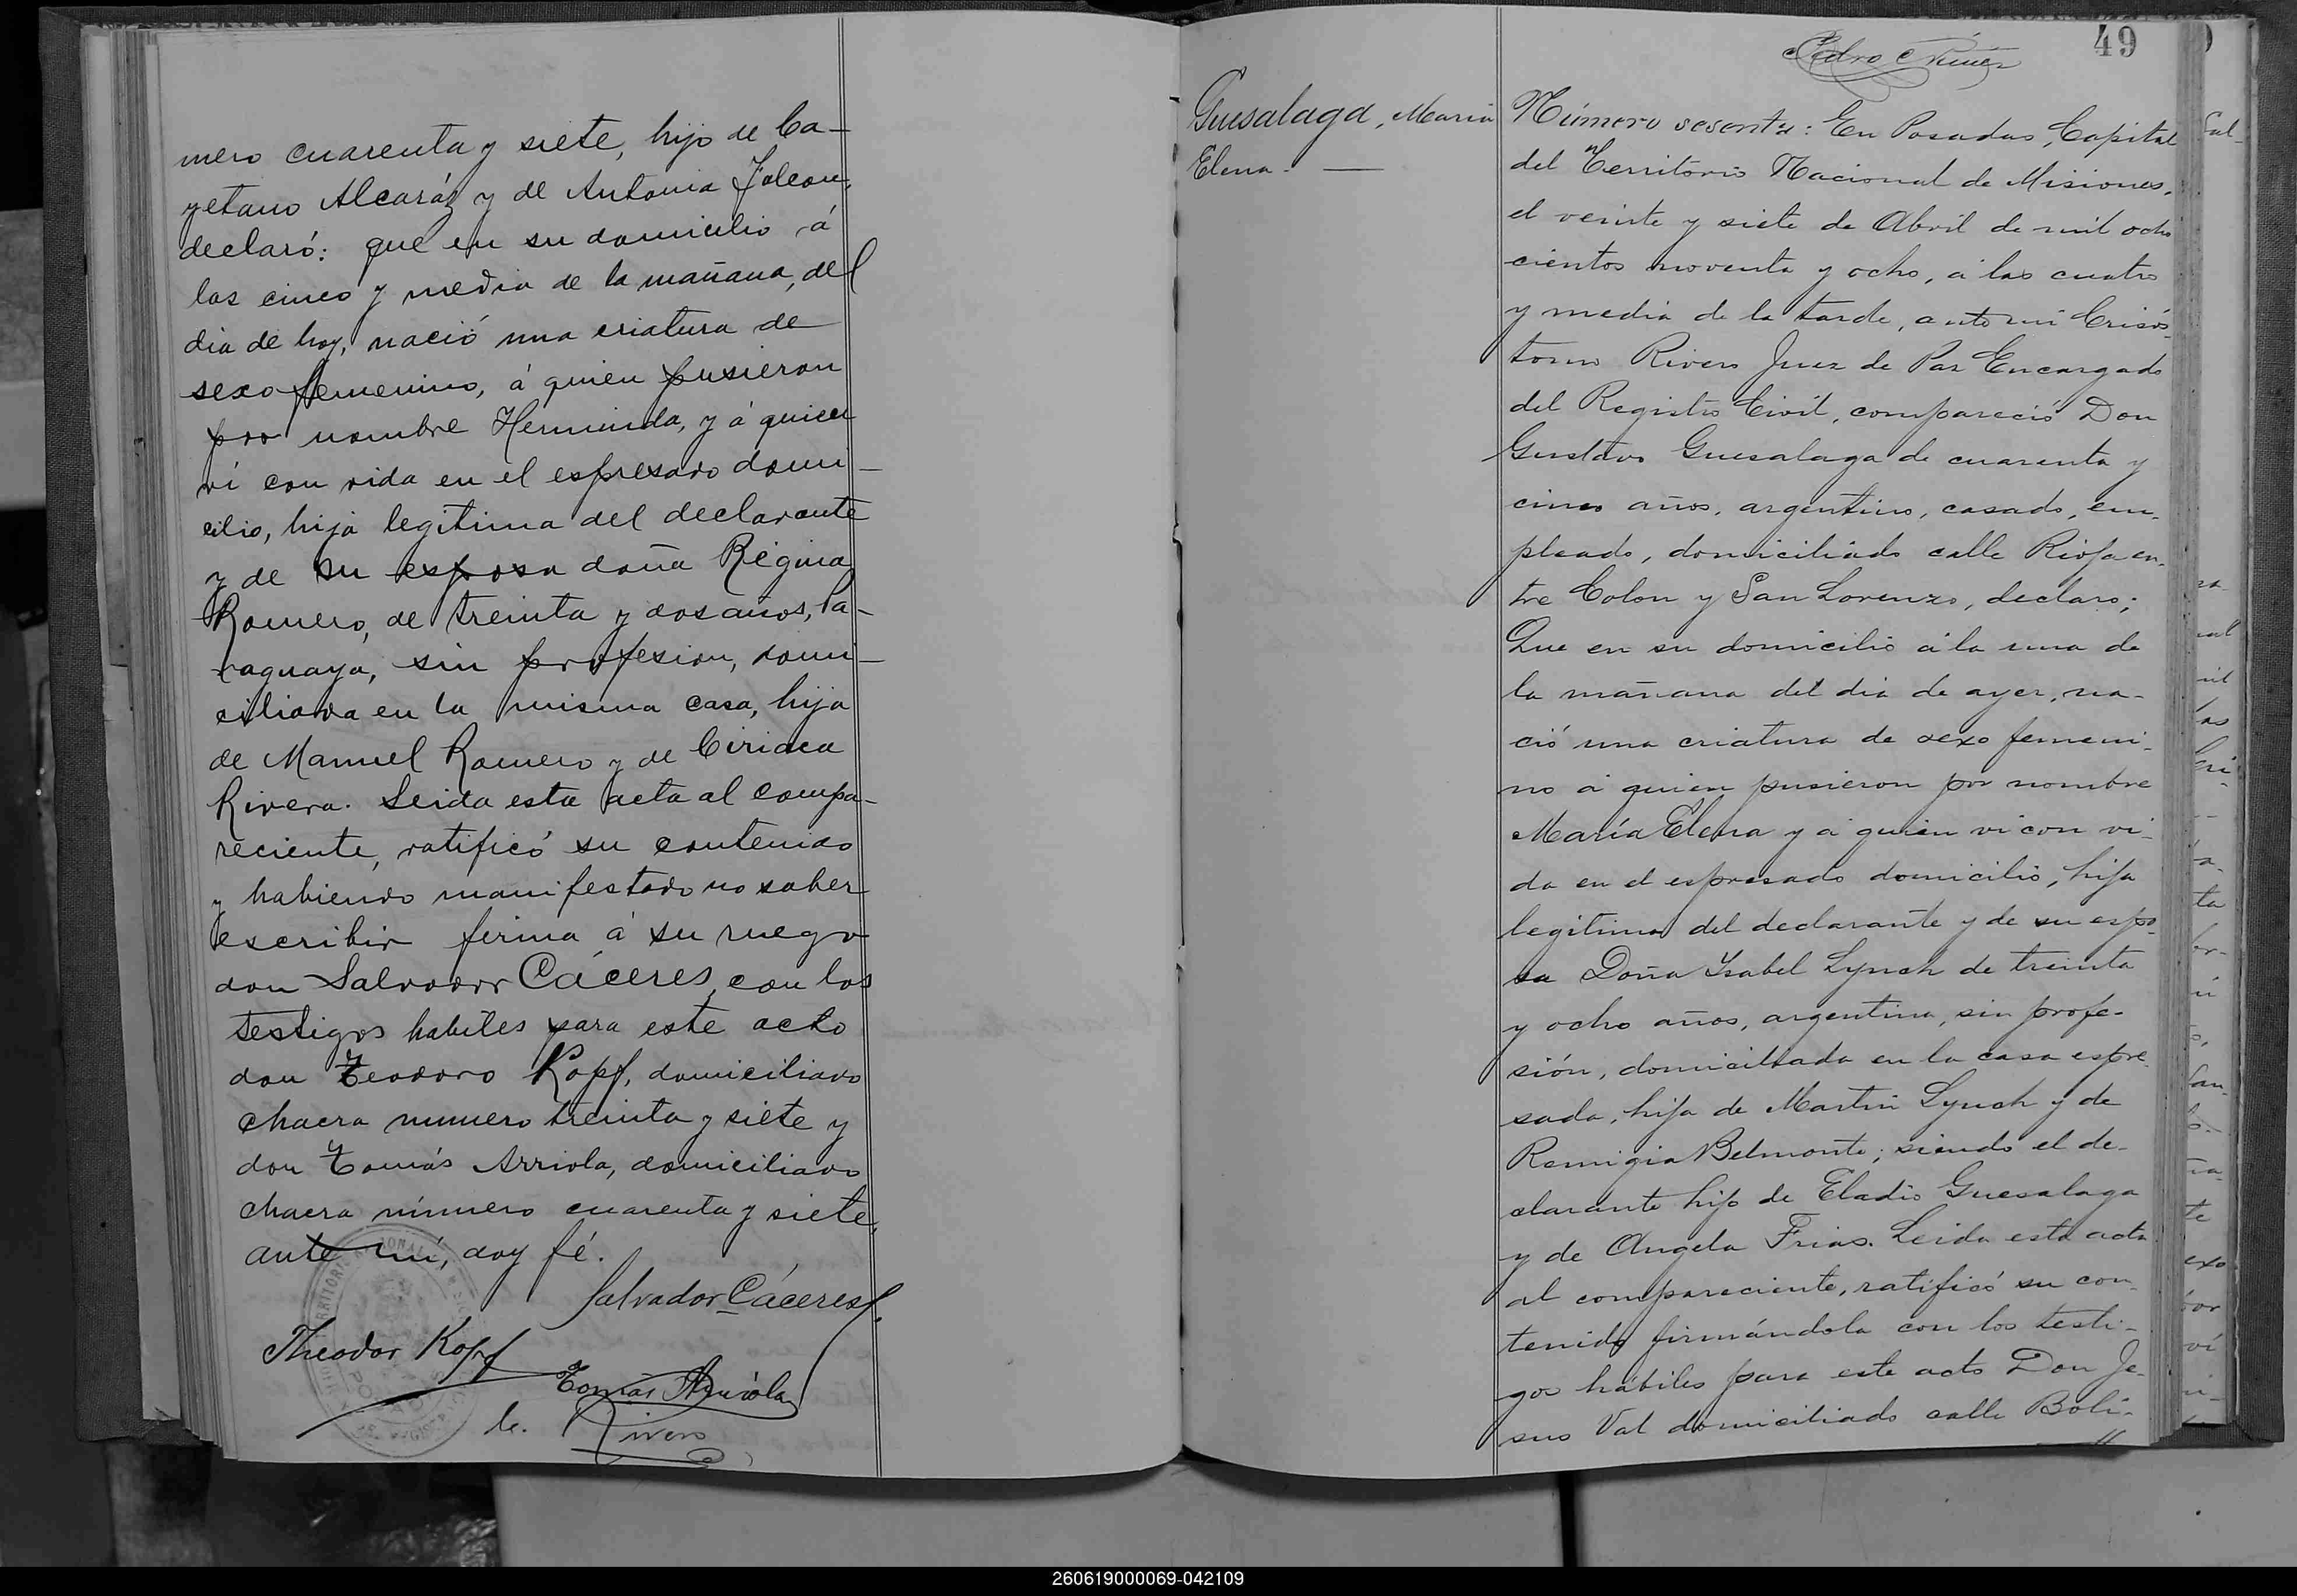 mero cuarenta y siete, hijo de Ca-
yetano Alcaráz y de Antonia Falcon,
declaró: que en su domicilio á
las cinco y media de la mañana, del
dia de hoy, nació una criatura de
sexo femenino, á quien pusieron
por nombre Herminda, y á quien
ví con vida en el espresado domi-
cilio, hija legítima del declarante
y de su esposa doña Regina
Romero, de treinta y dos años, Pa-
raguaya, sin profesion, domi-
ciliada en la misma casa, hija
de Manuel Romero y de Ciriaca
Rivera. Leida esta acta al compa-
reciente, ratificó su contenido
y habiendo manifestado no saber
escribir firma á su ruego
don Salvador Cáceres, con los
testigos habiles para este acto
don Teodoro Kopf, domiciliado
chacra numero treinta y siete y
don Tomás Arriola, domiciliado
chacra número cuarenta y siete,
ante mí, doy fé.
Salvador Cáceres
Theodor Kopf
Tomás Arriola
C. Rivero
49
Pedro Nuñez
Guesalaga, Maria
Elena. —
Número sesenta: En Posadas, Capital
del Territorio Nacional de Misiones,
el veinte y siete de Abril de mil ocho
cientos noventa y ocho, á las cuatro
y media de la tarde, ante mi Crisós
tomo Rivero Juez de Paz Encargado
del Registro Civil, compareció Don
Gustavo Guesalaga de cuarenta y
cinco años, argentino, casado, em-
pleado, domiciliado calle Rioja en-
tre Colon y San Lorenzo, declaro;
Que en su domicilio á la una de
la mañana del dia de ayer, na-
ció una criatura de sexo femeni-
no á quien pusieron por nombre
María Elena y á quien vi con vi-
da en el espresado domicilio, hija
legítima del declarante y de su espo-
sa Doña Isabel Lynch de treinta
y ocho años, argentina, sin profe-
sión, domiciliada en la casa espre
sada, hija de Martin Lynch y de
Remigia Belmonte; siendo el de-
clarante hijo de Eladio Guesalaga
y de Angela Frias. Leida esta acta
al compareciente, ratificó su con
tenido firmándola con los testi-
gos hábiles para este acto Don Je-
sus Val domiciliado calle Bolí-
260619000069-042109